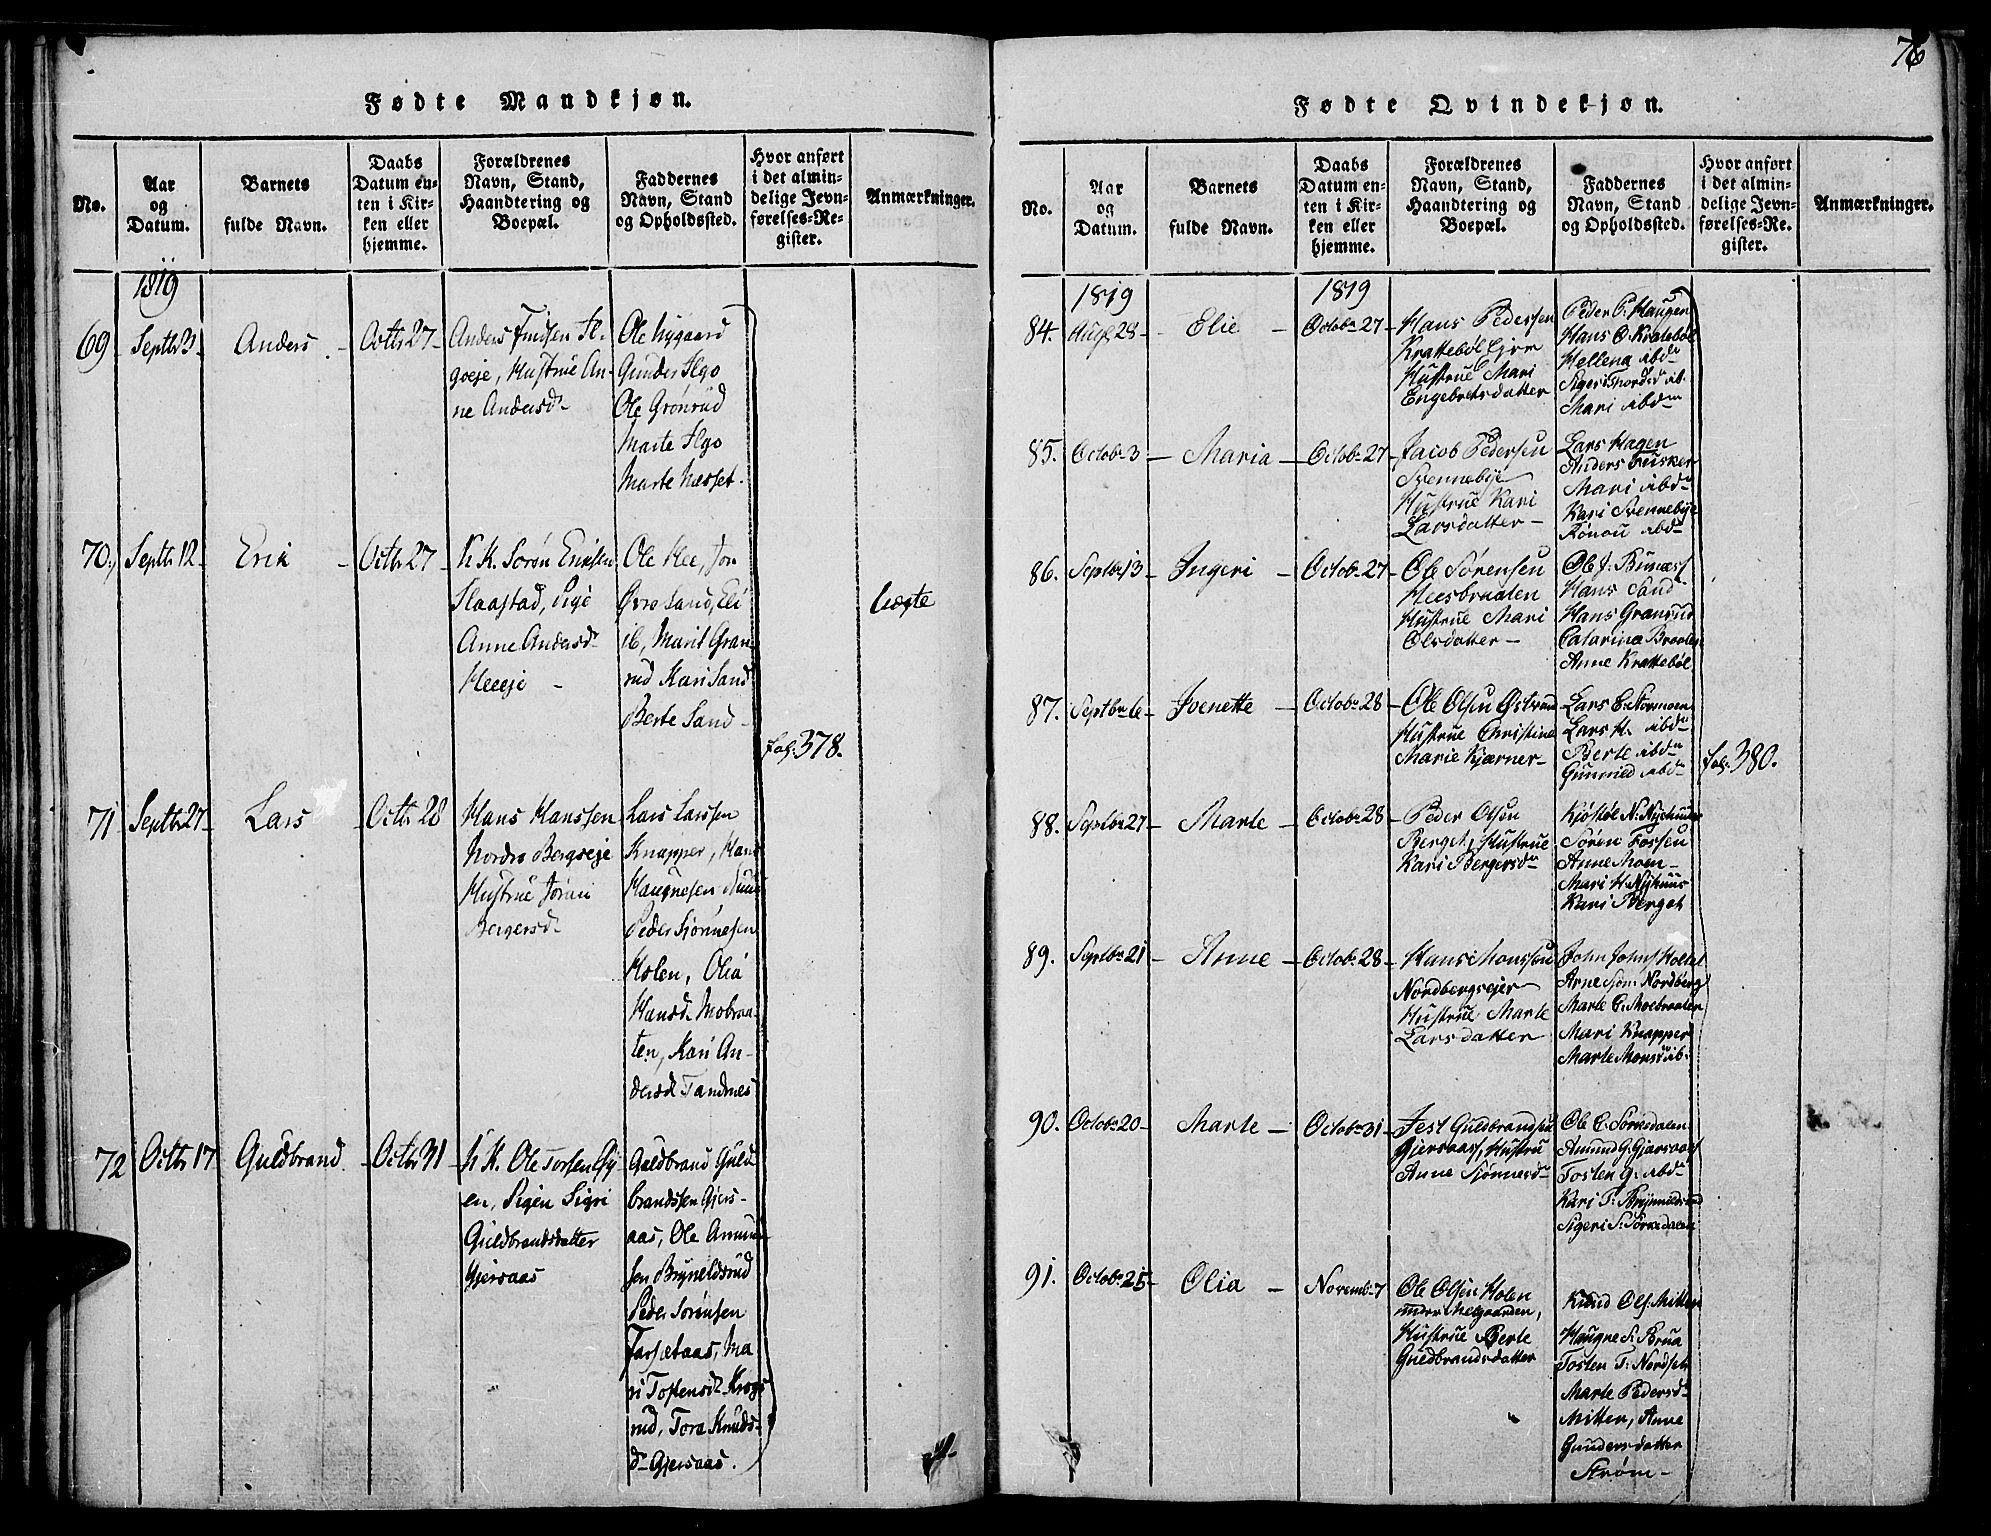 76
Fødte Mandkjøn.
No.
Aar
og
Datum.
Barnets
fulde Navn.
Daabs
Datum en-
ten i Kir-
ken eller
hjemme.
Forældrenes
Navn, Stand,
Haandtering og
Boepæl.
Faddernes
Navn, Stand
og Opholdssted.
Hvor anført
i det almin-
delige Jevn-
førelses-Re-
gister.
Anmærkninger.
1819
69
Septbr 3
Anders
Octbr 27
Anders
goeje, Hustrue An-
ne Andersd.
Ole Nygaard
Gunder Ilgo
Ole Grønrud
Marte Ilgo
Marte Næsset.
70.
Septbr 12
Erik
Octbr 27
U.K. Sorøn Eriksen
Slaastad, Pige
Anne Andersd.
Heeeje
Ole Hee, Jon
Øvre Sand, Eli
ib, Marit Gran-
rud Kari Sand
Berte Sand
Uægte
fol. 378.
71
Septbr 27
Lars
Octbr 28
Hans Hanssen
Nordre Bergseje
Hustrue Jøran
Bergersd.
Lars Larssen
Knapper, Hans
Haugnesen
Peder Siønnesen
Holen, Olia
Hansd. Mobraa-
ten, Kari An-
dersd. Tandnes
72
Octbr 17
Guldbrand
Octbr 31
U.K. Ole Torsen Øy
en, Pigen Sigri
Guldbrandsdatter
Gjersaas
Guldbrand Guld
brandssen Gjers-
aas, Ole Amund
sen Bryneldsrud
Peder Sørensen
Farsetaas, Ma
ri Tostensd. Krogs
rud, Tora Knuds-
dr Gjersaas.
Fødte Qvindekjøn.
No.
Aar
og
Datum.
Barnets
fulde Navn.
Daabs
Datum en-
ten i Kir-
ken eller
hjemme.
Forældrenes
Navn, Stand,
Haandtering og
Boepæl.
Faddernes
Navn, Stand
og Opholdssted.
Hvor anført
i det almin-
delige Jevn-
førelses-Re-
gister.
Anmærkninger.
1819
1819
84.
Aug. 28
Elie
Octobr 27
Hans Pedersen
Krattebøl Ejer
Hustrue Mari
Engebretsdatter
Peder P. Haugen
Hans O. Krattebøl
Hellena ibdm
Sigeri
Mari ibdm
85.
Octobr 3
Maria
Octobr 27
Jacob Pedersen
Svennebye
Hustrue Kari
Larsdatter
Lars Hagen
Anders Feisker
Mari ibdm
Kari Svennebye
Rønou ibdm
86.
Septbr 13
Ingeri
Octobr 27
Ole Sørensen
Heesbraaten
Hustrue Mari
Olsdatter
Ole J. Bunæss
Hans Sand
Hans Granrud
Catarina Braaten
Anne Krattebøl
87.
Septbr 6
Jvenette
Octobr 28
Ole Olsen Østrud
Hustrue Christine
Marie Kjærner
Lars E. Stormoen
Lars H. ibdm
Berte ibdm
Gunnild ibdm
fol. 380.
88.
Septbr 27
Marte
Octobr 28
Peder Olsen
Berget, Hustrue
Kari Bergersdr
Kjøstøl N. Nyehuus
Søren Fossen
Anne Moen
Mari H. Nyhuus
Kari Berget
89.
Septbr 21
Anne
Octobr 28
Hans Monssen
Nordbergsejer
Hustrue Marte
Larsdatter
John Johns. Holtet
Arne Sjøn. Nordberg
Marte E. Moebraaten
Mari Knapper
Marte Monsd. ib.
90.
Octobr 20
Marte
Octobr 31
Jest Guldbrandsen
Gjersaas, Hustru
Anne Sjønnesdr
Ole E. Sørkedalen
Amund G. Gjersaas
Tosten G. ibdm
Kari T. Brynnildsrud
Sigeri S. Sørkedalen
91.
Octobr 25
Olia
Novembr 7
Ole Olsen Holen
under Melgaarden,
Hustrue Berte
Guldbrandsdatter
Knud Ols. Mitten
Haagne S. Brua
Tosten T. Nordset
Marte Pedersdr
Mitten, Anne
Gundersdatter
Strøm